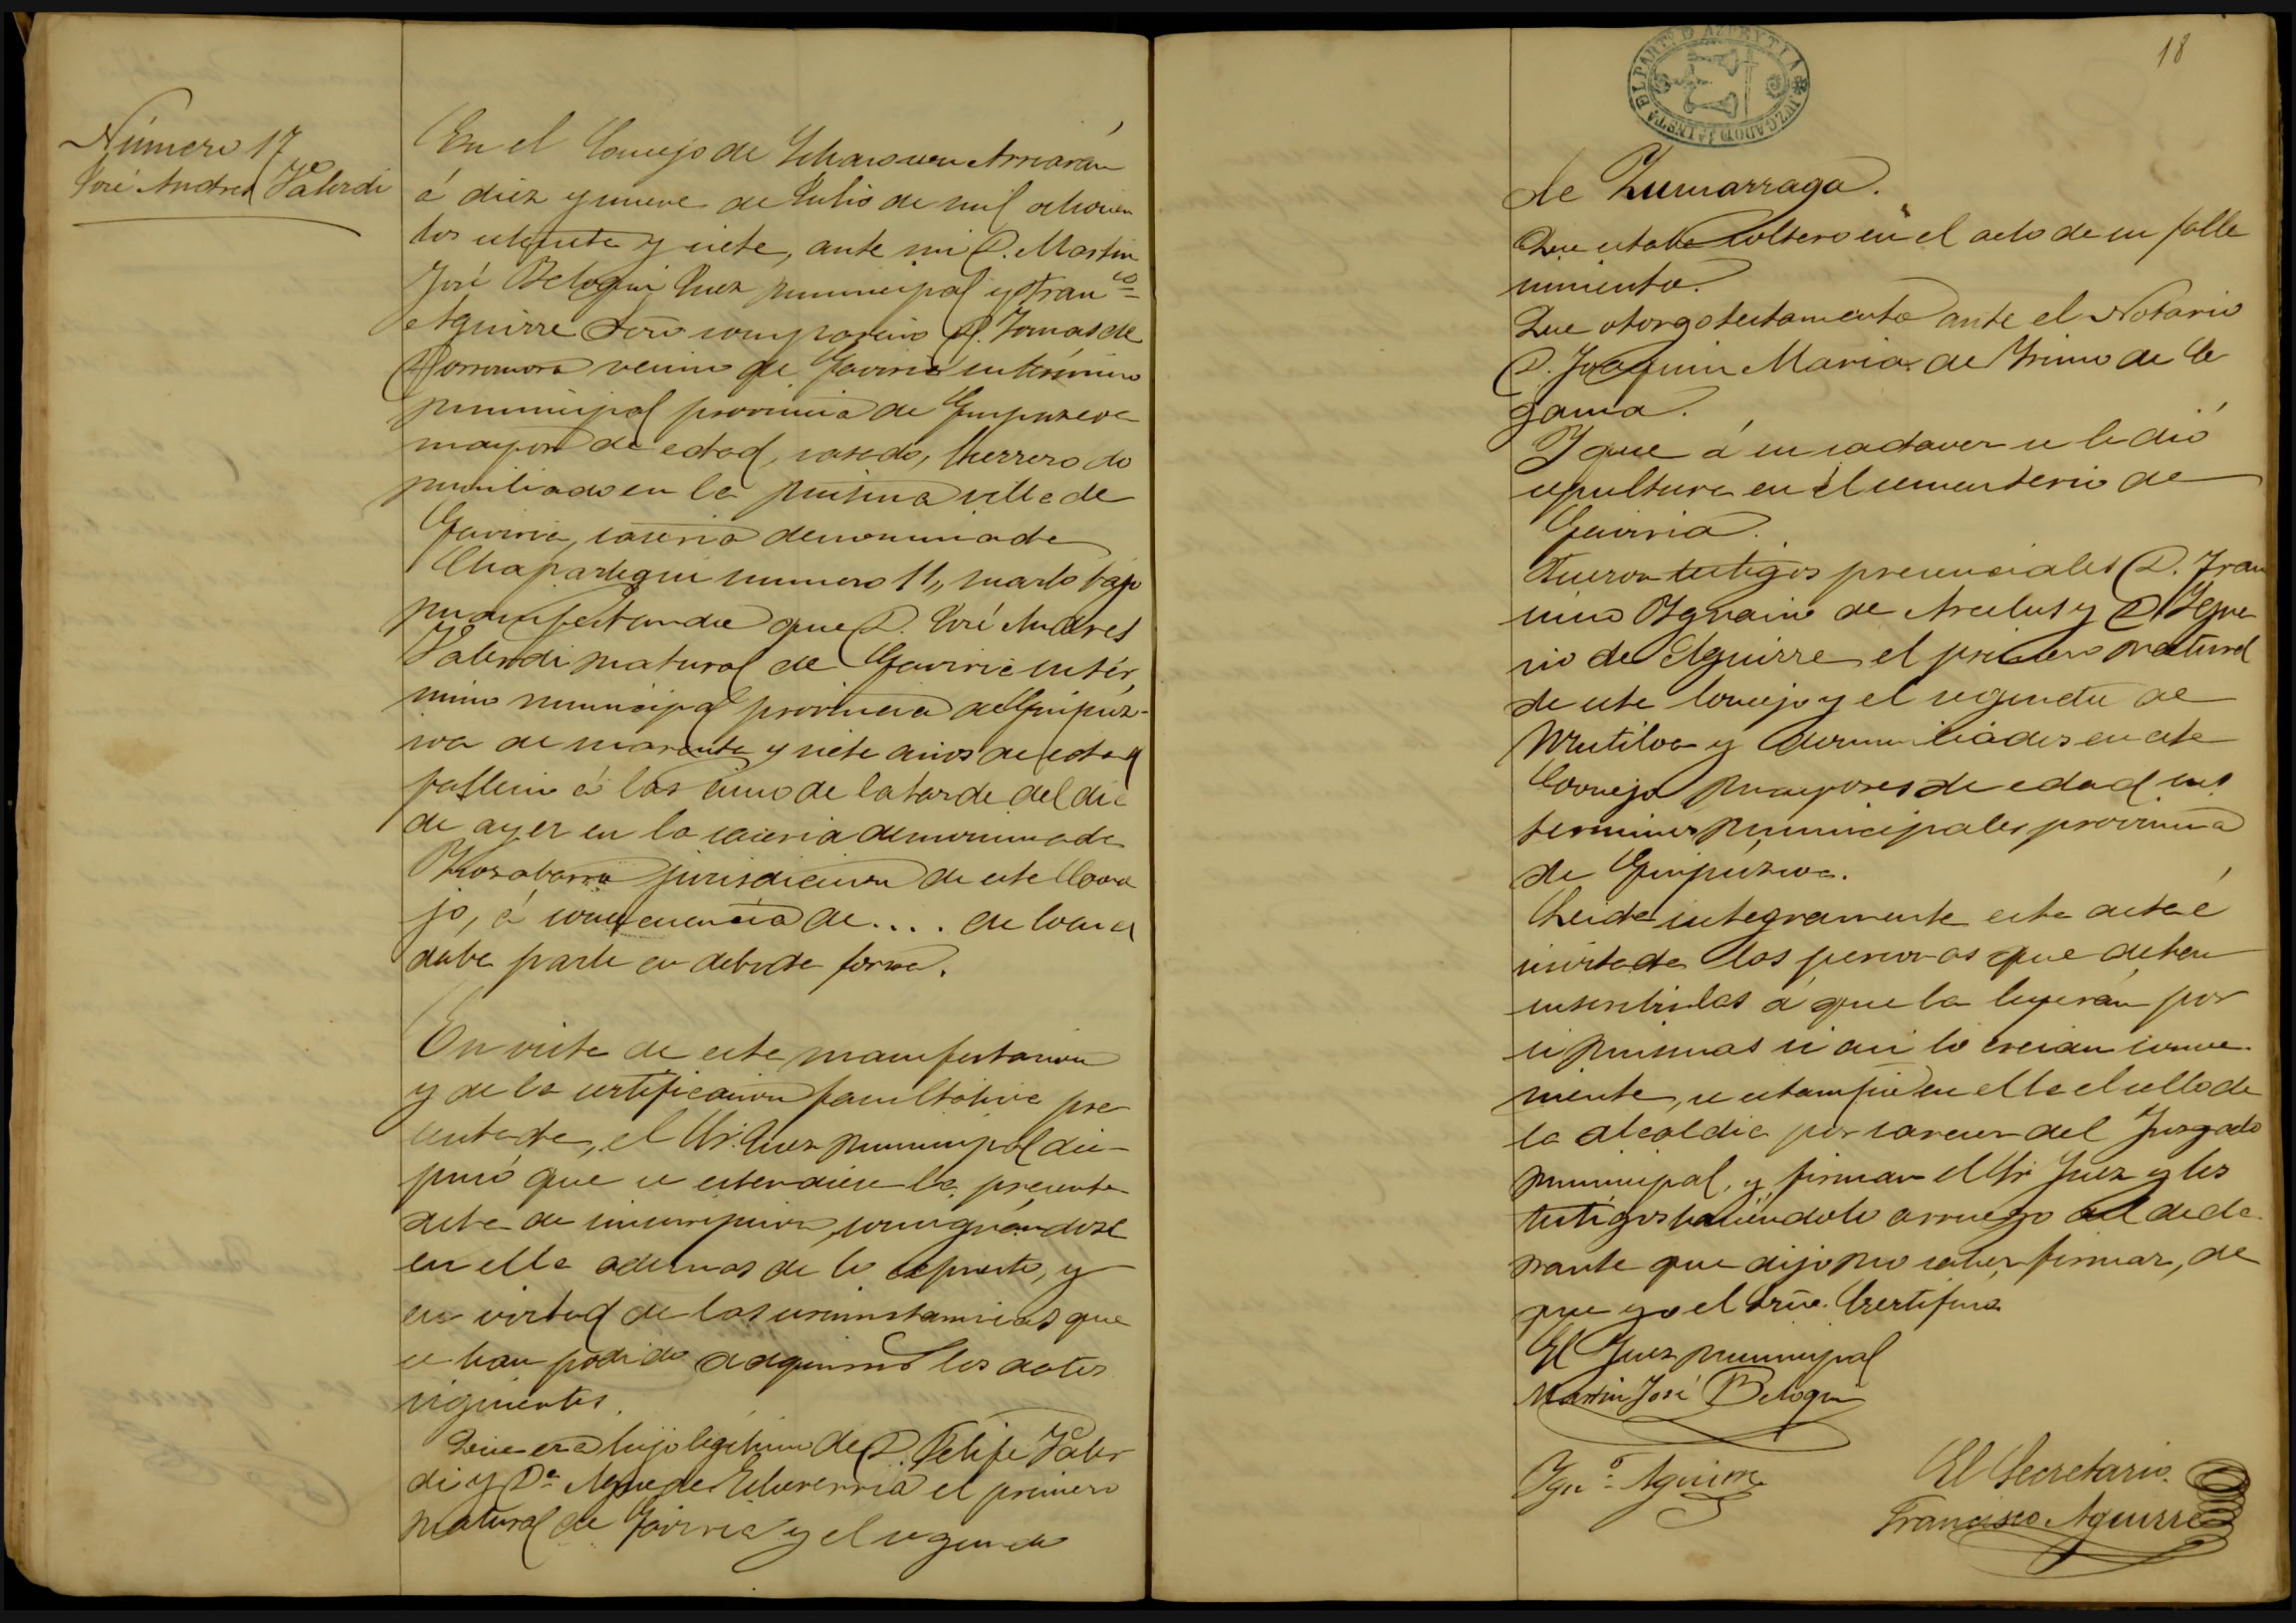 Número 17
José Andres Yalerdi
En el Concejo de Ichaso en Arriarán
á diez y nueve de Julio de mil ochocien
tos setenta y siete, ante mi D. Martin
José Beloqui Juez municipal y Fran.co
Aguirre Srio compareció D. Tomas de
vecino de Gaviria en término
municipal provincia de Guipuzcoa
mayor de edad, casado, herrero do
miciliado en la misma villa de
Gaviria, caseria denominada
Chapartegui numero 11, cuarto bajo
manifestando que D. José Andres
Yalerdi natural de Gaviria en tér
mino municipal provincia de Guipuz-
coa de cuarenta y siete años de edad
falleció á las cinco de la tarde del dia
de ayer en la caseria denominada
jurisdiccion de este Conce
jo, á consecuencia de.... de lo cual
daba parte en debida forma.
En vista de esta manifestacion
y de la certificacion facultativa pre
sentada, el Sr. Juez municipal dis-
puso que se estendiese la presente
acta de inscripcion, consignándose
en ella ademas de lo espuesto, y
en virtud de las circunstancias que
se han podido adquirir los datos
siguientes.
Que era hijo legitimo de D. Felipe Yaler
di y D.a Agueda Echeverria el primero
natural de Gaviria y el segundo
18
JUZGADO DE 1ª INSTA. DEL PARTº D AZPEYTIA
de Zumarraga.
Que estaba soltero en el acto de su falle
cimiento.
Que otorgo testamento ante el Notario
D. Joaquin Maria de Irimo de Ce
gama.
Y que á su cadaver se le dió
sepultura en el cementerio de
Gaviria.
Fueron testigos presenciales D. Fran
cisco Ygnacio de Arcelus y D. Ygna
cio de Aguirre el primero natural
de este Concejo y el segundo de
Mutiloa y domiciliados en este
Concejo mayores de edad sus
terminos municipales provincia
de Guipuzcoa.
Leida integramente esta acta é
invitadas las personas que deben
suscribirlas á que la leyeran por
si mismas si asi lo creian conve-
niente, se estampó en ella el sello de
la alcaldia por carecer del Juzgado
municipal, y firman el Sr Juez y los
testigos haciendolo a ruego del decla
rante que dijo no saber firmar, de
que yo el Srio. Certifico
El Juez municipal
Martin José Beloqui
Ygn.o Aguirre
El Secretario.
Francisco Aguirre